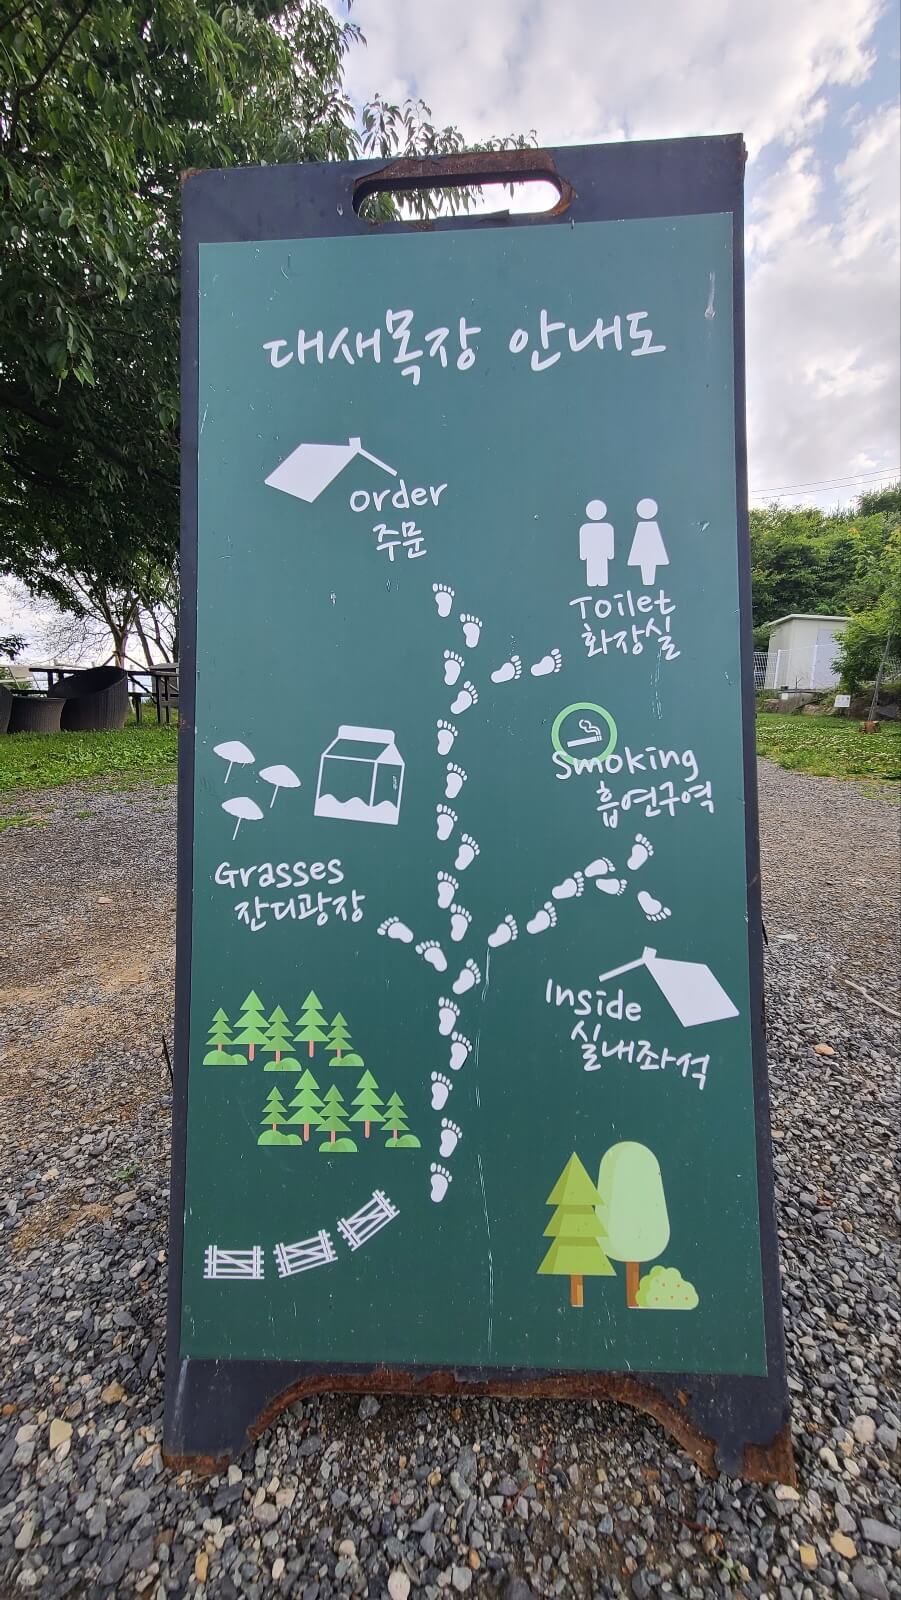 대새목장 안내도
order
주문
Toilet
화장실
Smoking
흡연구역
Grasses
잔디광장
Inside
실내좌석